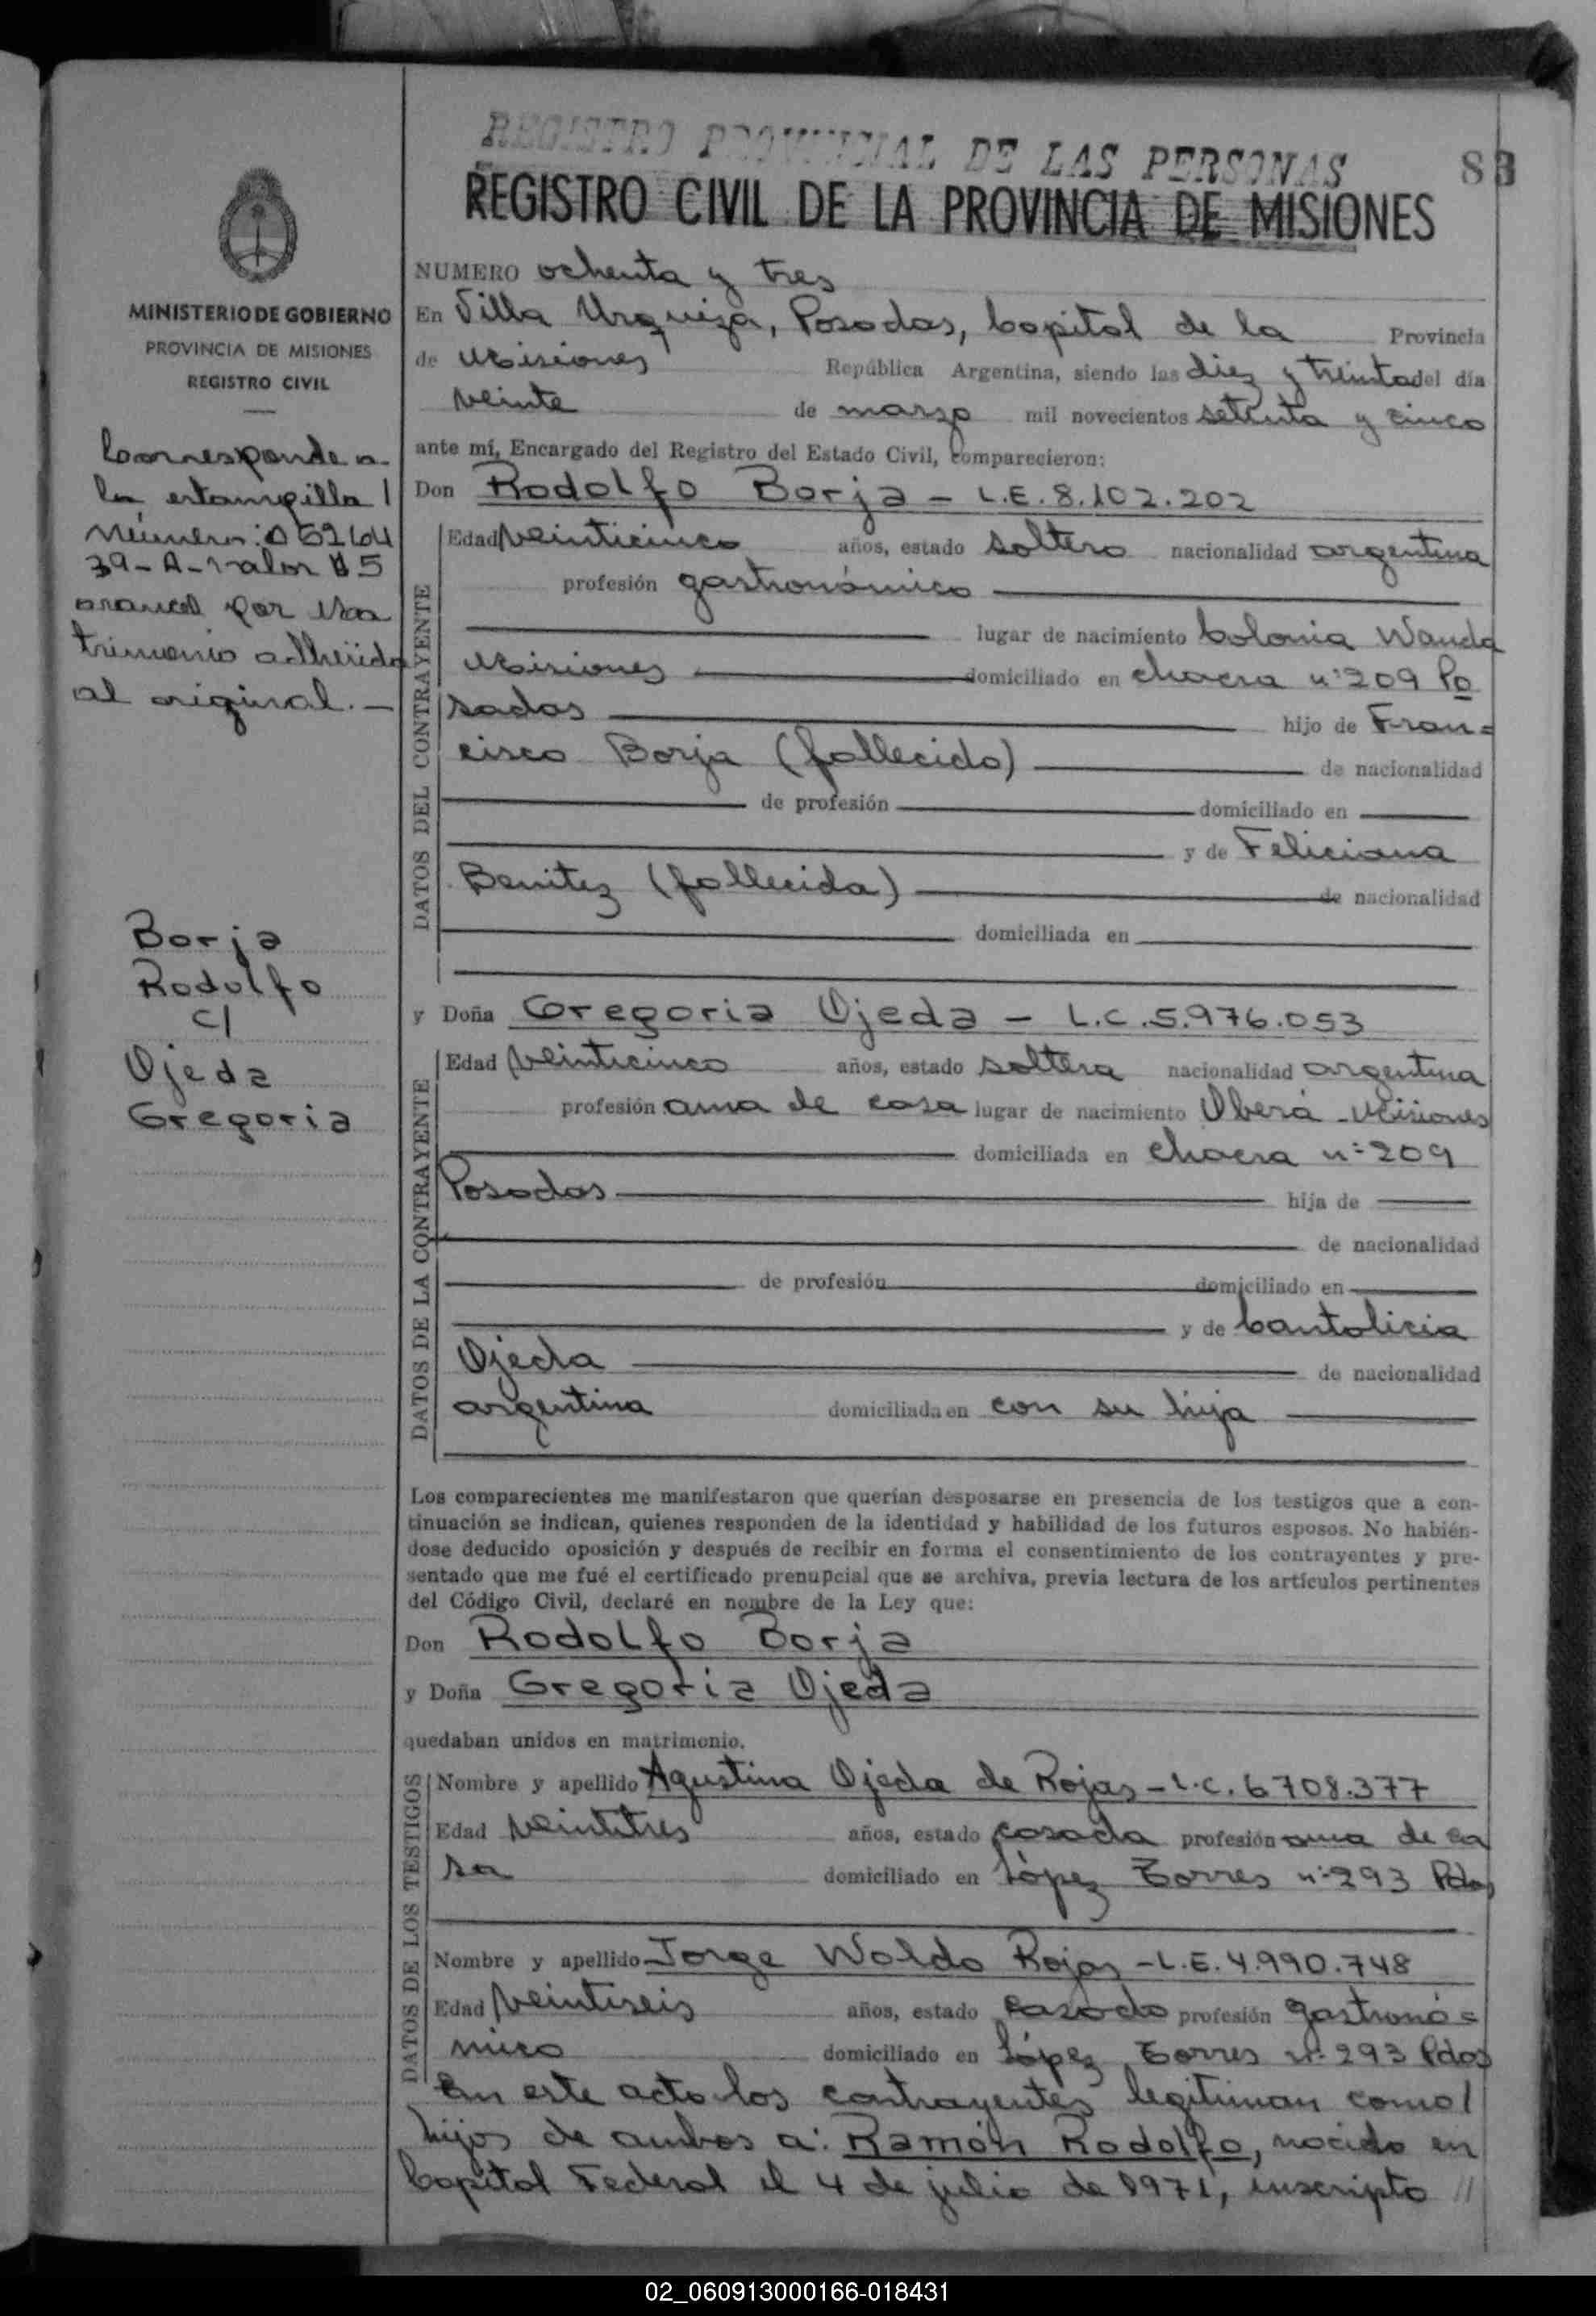 REGISTRO PROVINCIAL DE LAS PERSONAS
83
REGISTRO CIVIL DE LA PROVINCIA DE MISIONES
MINISTERIO DE GOBIERNO
PROVINCIA DE MISIONES
REGISTRO CIVIL
Corresponde a
la estampilla
Número:
39-A-valor $5
arancel por Ma
trimonio adherida
al original.-
Borja
Rodolfo
c/
Ojeda
Gregoria
NUMERO ochenta y tres
En Villa Urquiza, Posadas, Capital de la Provincia
de Misiones República Argentina, siendo las diez y treinta del día
veinte de marzo mil novecientos setenta y cinco
ante mí, Encargado del Registro del Estado Civil, comparecieron:
Don Rodolfo Borja - L.E. 8.102.202
DATOS DEL CONTRAYENTE
Edad veinticinco años, estado soltero nacionalidad argentina
profesión gastronómico
lugar de nacimiento Colonia Wanda
Misiones domiciliado en chacra n°209 Po
sadas hijo de Fran=
cisco Borja (fallecido) de nacionalidad
de profesión domiciliado en
y de Feliciana
Benitez (fallecida) de nacionalidad
domiciliada en
y Doña Gregoria Ojeda - L.C. 5.976.053
DATOS DE LA CONTRAYENTE
Edad veinticinco años, estado soltera nacionalidad argentina
profesión ama de casa lugar de nacimiento Oberá - Misiones
domiciliada en chacra n°209
Posadas hija de
de nacionalidad
de profesión domiciliado en
y de Cantolicia
Ojeda de nacionalidad
argentina domiciliada en con su hija
Los comparecientes me manifestaron que querían desposarse en presencia de los testigos que a con-
tinuación se indican, quienes responden de la identidad y habilidad de los futuros esposos. No habién-
dose deducido oposición y después de recibir en forma el consentimiento de los contrayentes y pre-
sentado que me fué el certificado prenupcial que se archiva, previa lectura de los artículos pertinentes
del Código Civil, declaré en nombre de la Ley que:
Don Rodolfo Borja
y Doña Gregoria Ojeda
quedaban unidos en matrimonio.
DATOS DE LOS TESTIGOS
Nombre y apellido Agustina Ojeda de Rojas - L.C. 6708.377
Edad veintitres años, estado casada profesión ama de ca
sa domiciliado en López Torres n°293 Pdas
Nombre y apellido Jorge Waldo Rojas - L.E. 4.990.748
Edad veintiseis años, estado casado profesión gastronó=
mico domiciliado en López Torres n°293 Pdas
En este acto los contrayentes legitiman como/
hijos de ambos a: Ramón Rodolfo, nacido en
Capital Federal el 4 de julio de 1971, inscripto //
02_060913000166-018431